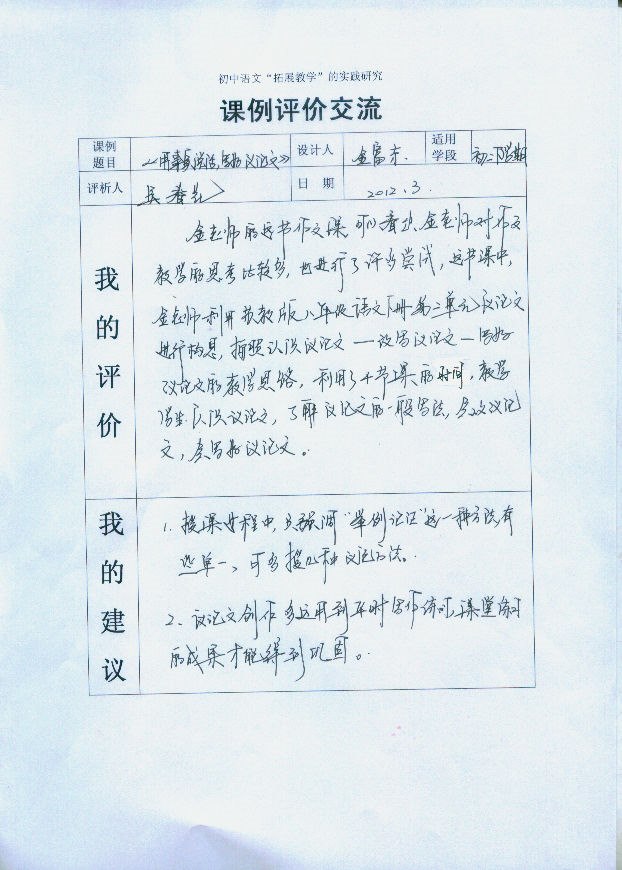 初中语文“拓展教学”的实践研究
课例评价交流
课例题目 《用事实说话,写好议论文》 设计人 金富东 适用学段 初二下学期
评析人 吴春兰 日期 2012.3.
我的评价
金老师的这节作文课,可以看出,金老师对作文
教学的思考比较多,也进行了许多尝试,这节课中,
金老师利用苏教版八年级语文下册第二单元议论文
进行构思,按照认识议论文—设写议论文—写好
议论文的教学思路,利用了4节课的时间,教学
学生认识议论文,了解议论文的一般写法,学议论
文,会写好议论文。
我的建议
1. 授课过程中,只强调“举例论证”这一种方法有
些单一、可多授几种议论方法。
2、议论文创作多运用到平时写作练习,课堂练习
的成果才能得到巩固。